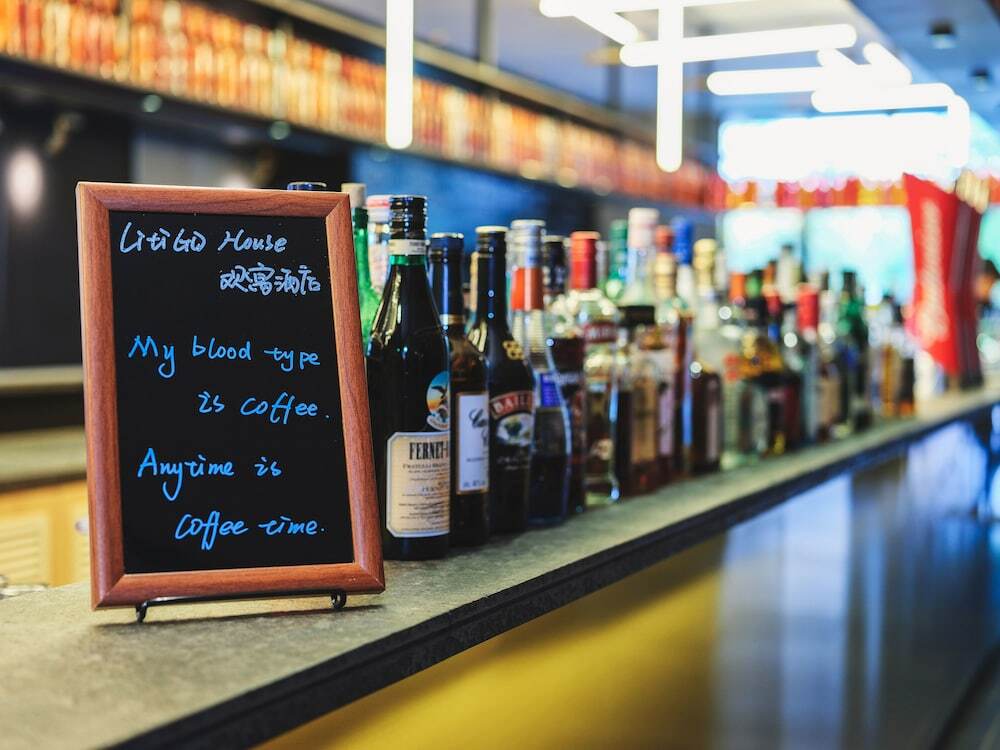 LiTiGO House
观寓酒店
My blood type
is coffee.
Anytime is
Coffee time.
FERNET-
FRATELLI BRANCA
BAILEYS